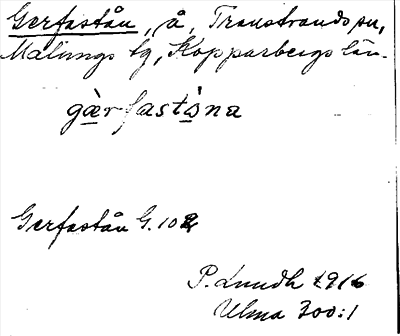 Gerfastån, å, Transtrands sn,
Malungs tg, Kopparbergs län.
gæ̀rfastå̀na
Gerfastån G. 102
P. Lundh 1916
Ulma 300:1